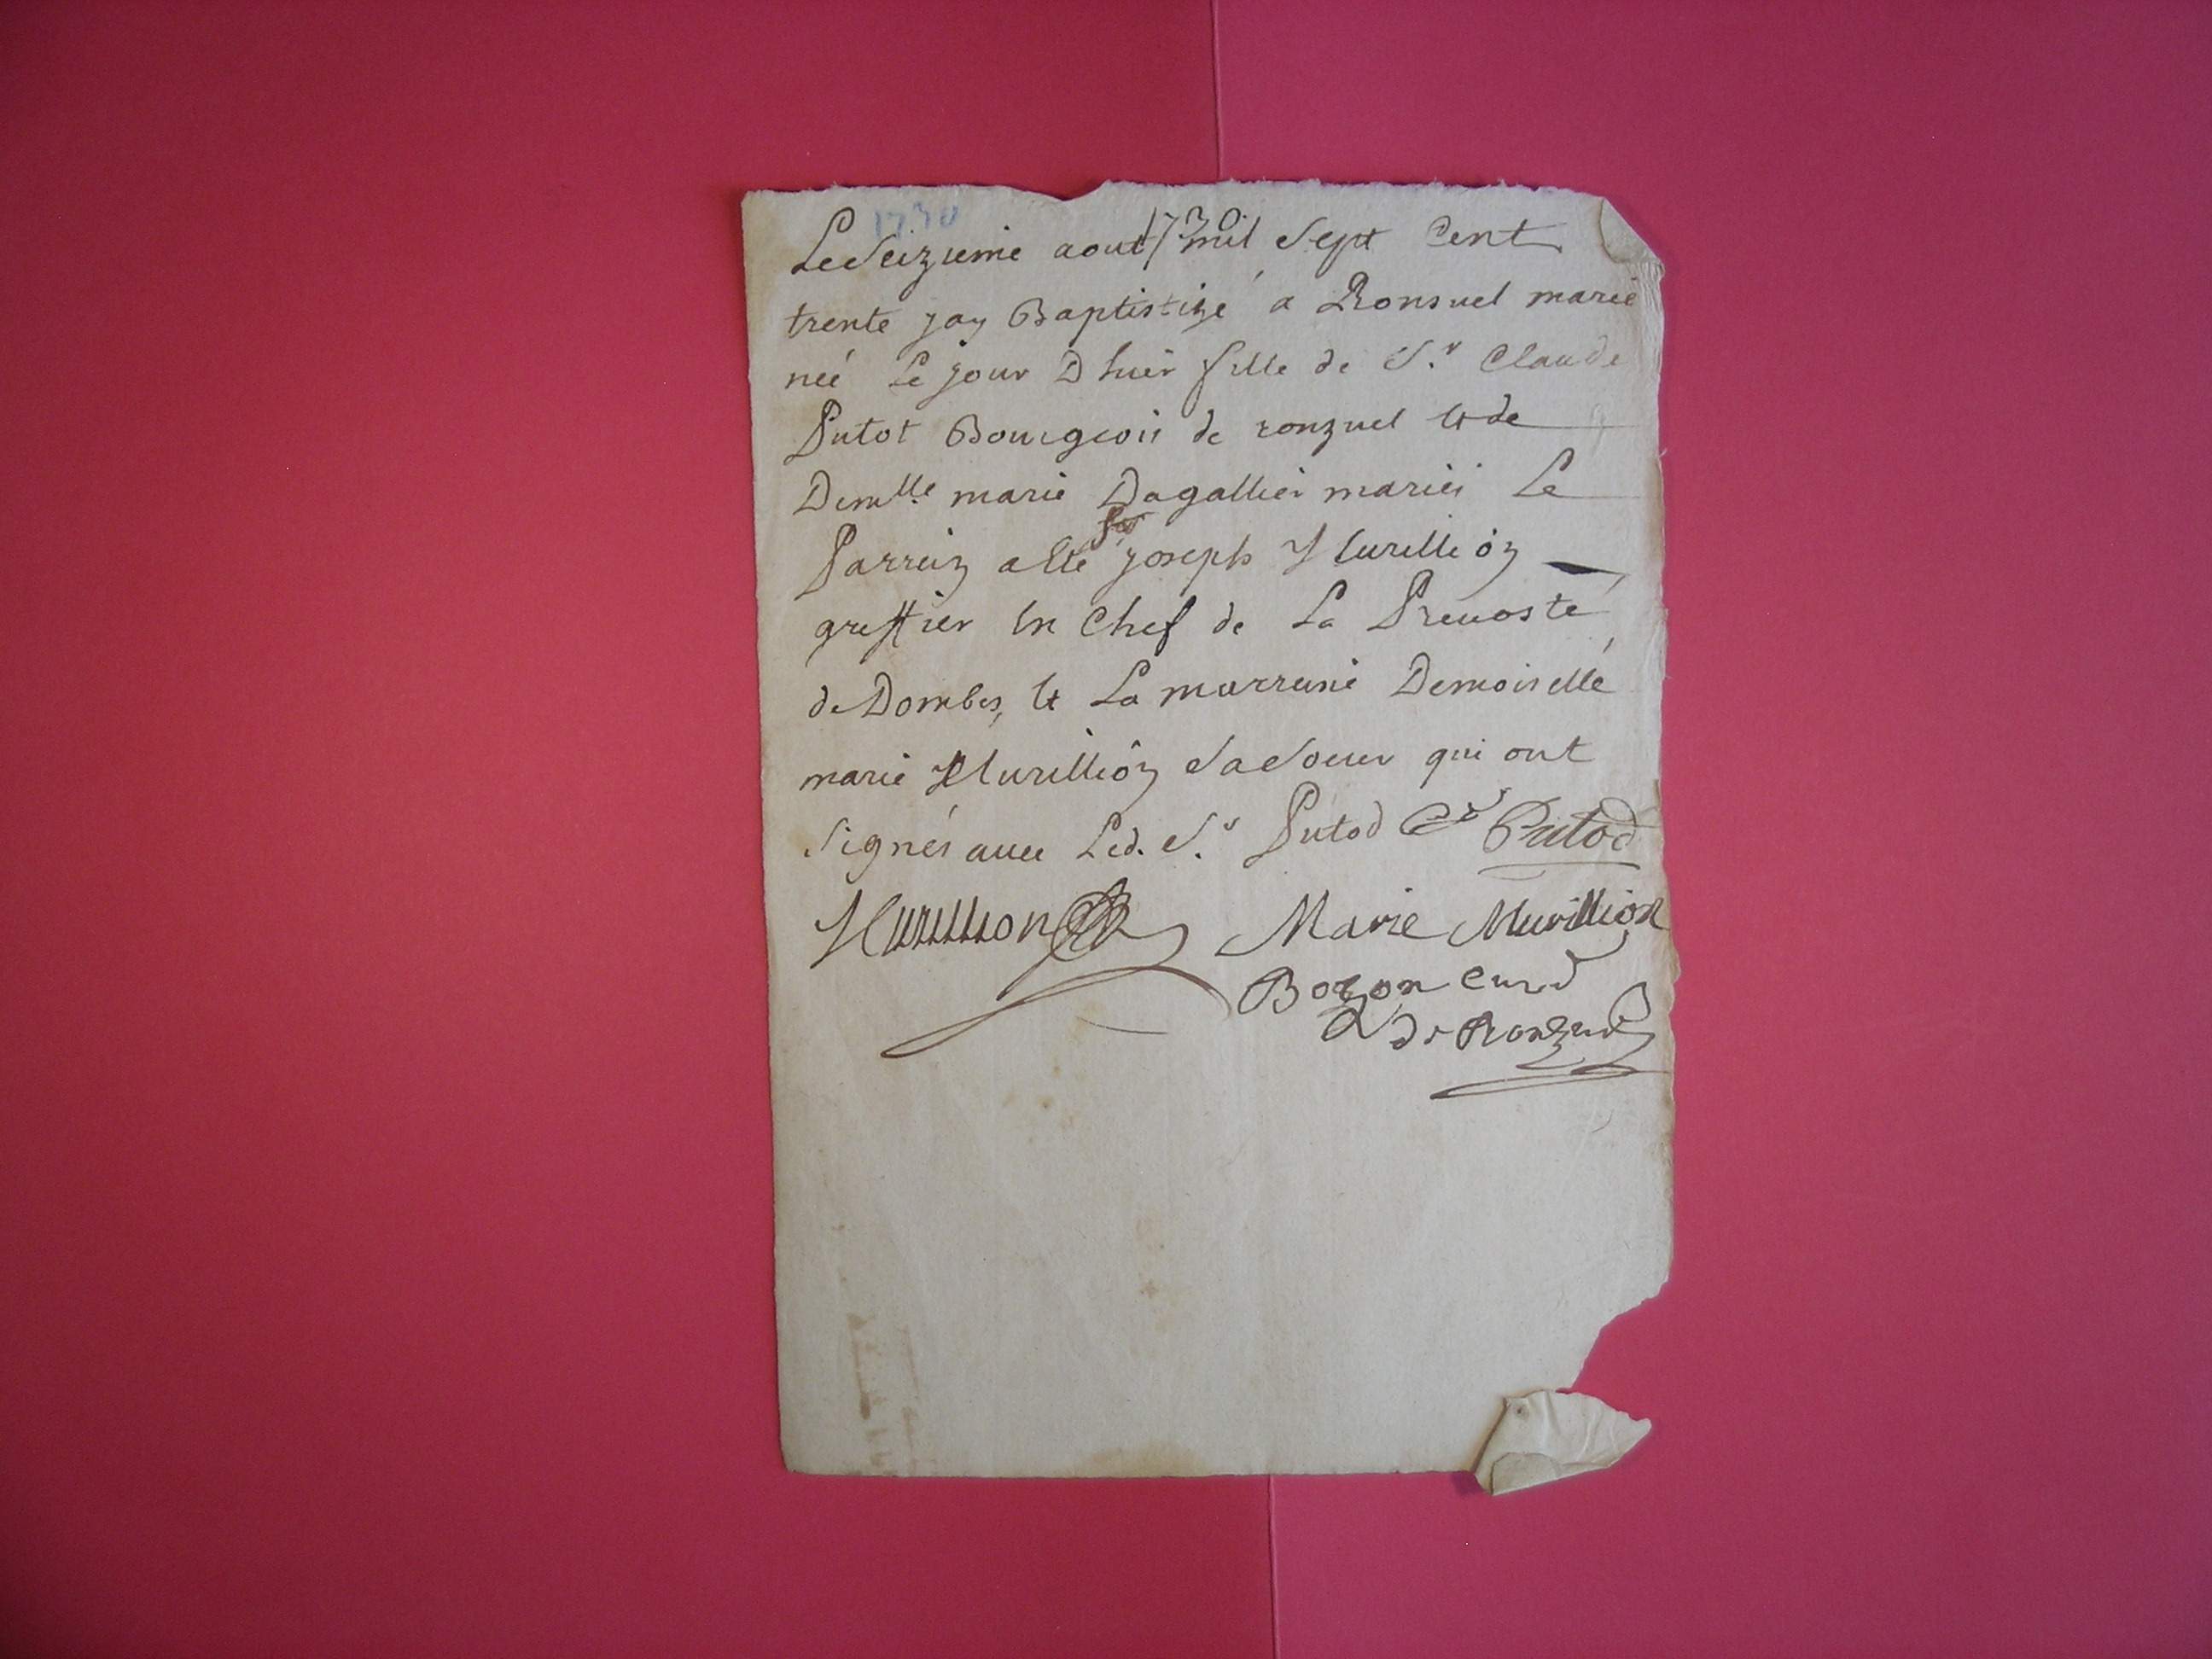 1730
Le Seizieme aout 1730 mil Sept Cent
trente jay Baptistizé a Ronsuel marie
neé Le jour D hier fille de S.r Claude
Putot Bourgeois de ronzuel et de
Demlle marie Dagallier mariés Le
Parrein a été Sr joseph Murillion
greffier en Chef de La Prevosté
de Dombes, et La marreine Demoiselle
marie Murillion Sa Soeur qui ont
Signés avec Led. S.r Putod Putod
Murillion Marie Murillion
Bozon Curé
de Ronzuel